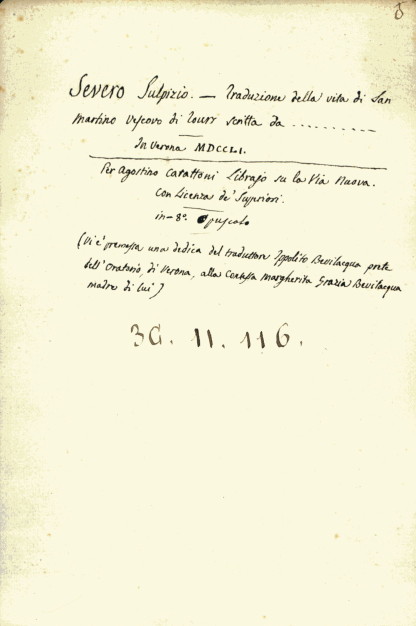 8
Severo Sulpizio. — Traduzione della vita di San
Martino Vescovo di Tours scritta da ..........
In Verona MDCCLI.
Per Agostino Carattoni Librajo su la Via Nuova.
Con Licenza de' Superiori.
in-8°. Opuscolo
(Vi è premessa una dedica del traduttore Ippolito Bevilacqua prete
dell'Oratorio, di Verona, alla Contessa Margherita Grazia Bevilacqua
madre di lui)
3G. 11. 116.